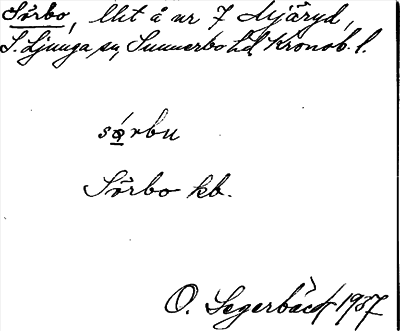 Sörbo, lht å nr 7 Mjäryd,
S. Ljunga sn, Sunnerbo hd, Kronob. l.
sǫ́rbu
Sörbo kb.
O. Segerbäck 1937